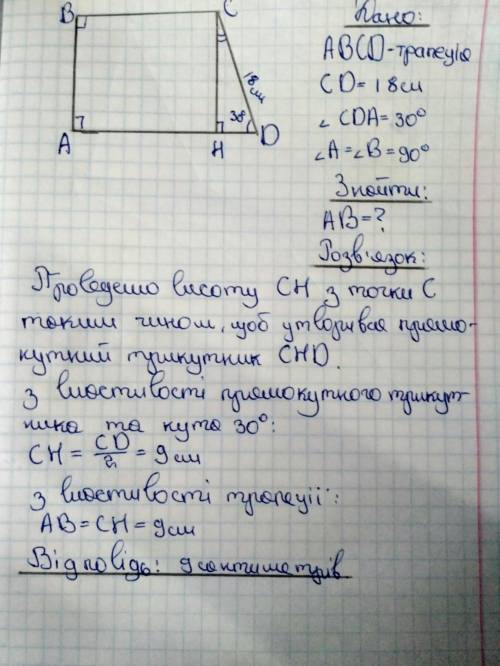 B C
18 см
30°
A H D
Дано:
ABCD-трапеція
CD=18см
∠CDA=30°
∠A=∠B=90°
Знайти:
AB=?
Розв'язок:
Проведемо висоту CH з точки C
таким чином, щоб утворився прямо-
кутний трикутник CHD.
З властивості прямокутного трикут-
ника та кута 30°:
CH = CD/2 = 9 см
З властивості трапеції:
AB = CH = 9см
Відповідь: 9 сантиметрів